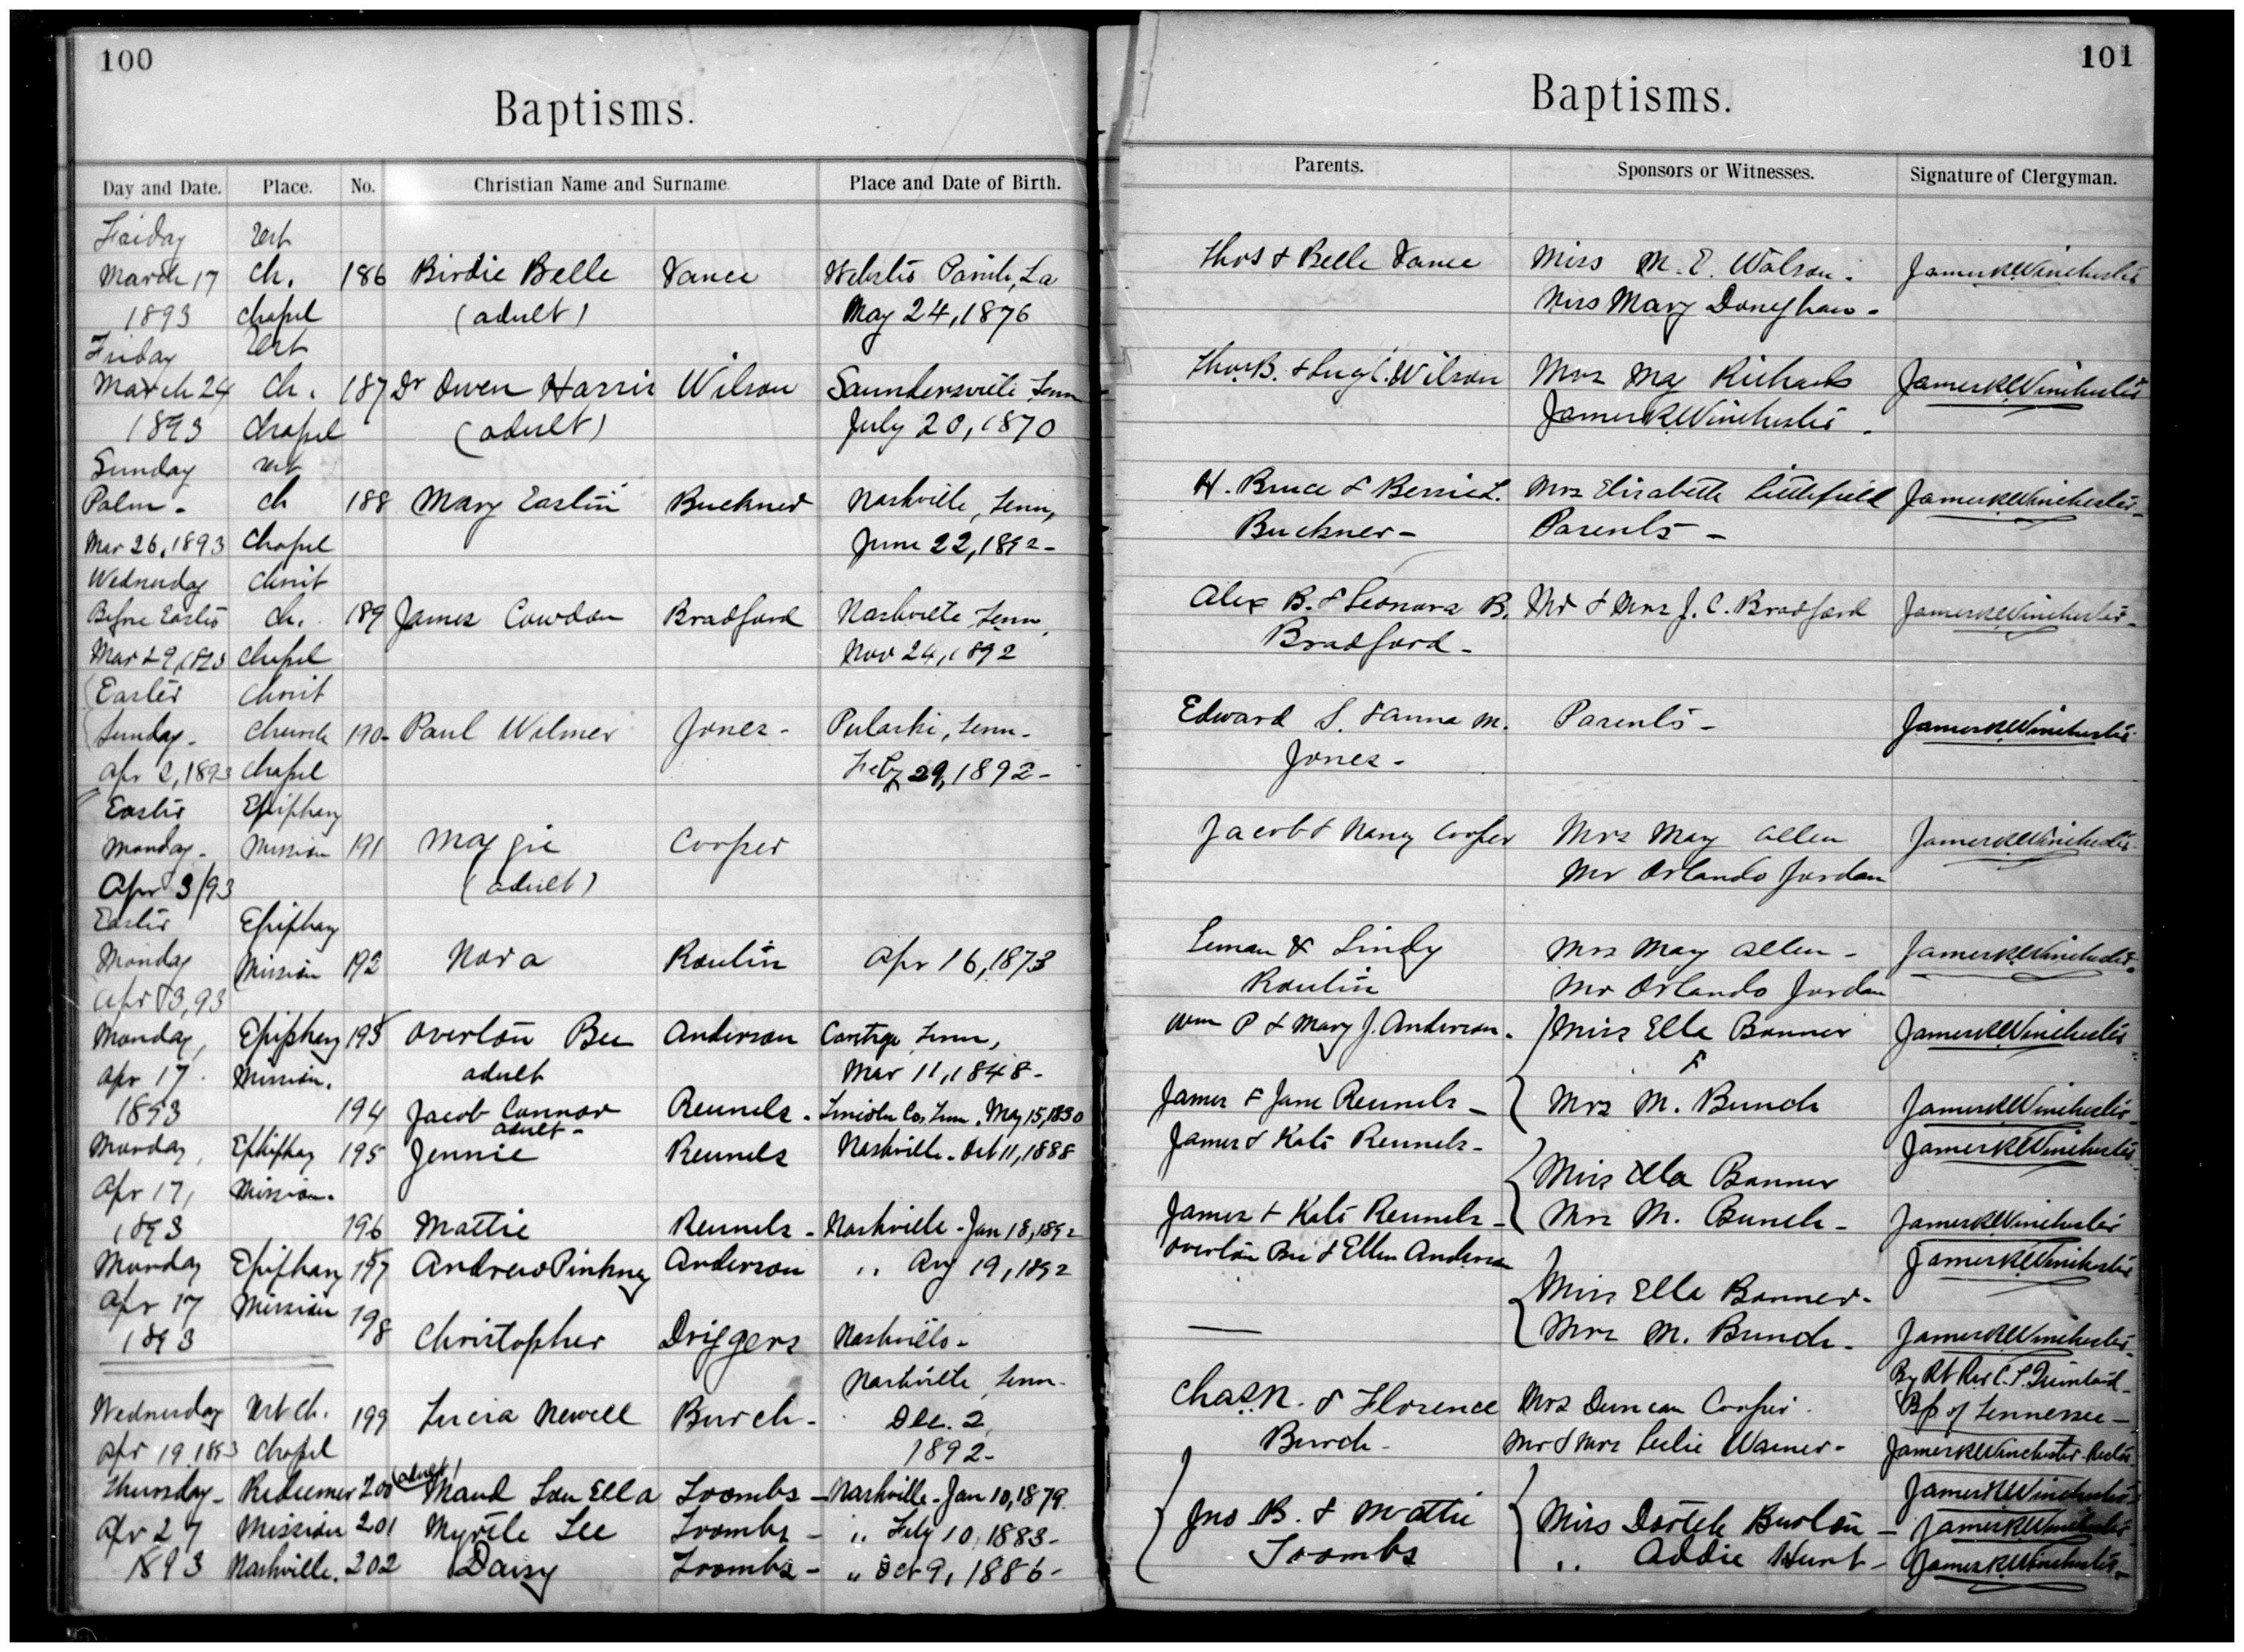 100
Baptisms.
Day and Date. Place. No. Christian Name and Surname. Place and Date of Birth.
Friday
March 17 Ch. 186 Birdie Belle Vance Webster Parish, La
1893 Chapel (adult) May 24, 1876
Friday
March 24 Ch. 187 Dr Owen Harris Wilson Saundersville Tenn
1893 Chapel (adult) July 20, 1870
Sunday
Palm - Ch 188 Mary Eastin Buckner Nashville, Tenn,
Mar 26, 1893 Chapel June 22, 1892 -
Wednesday Christ
Before Easter Ch. 189 James Cowdon Bradford Nashville Tenn,
Mar 29, 1893 Chapel Nov 24, 1892
Easter Christ
Sunday - Church 190 - Paul Wilmer Jones - Pulaski, Tenn -
Apr 2, 1893 Chapel Feby 29, 1892 -
Easter Epiphany
Monday - Mission 191 Maggie Cooper
Apr 3/93 (adult)
Easter Epiphany
Monday Mission 192 Nora Roulin Apr 16, 1873
Apr 3, 93
Monday, Epiphany 193 Overton Bee Anderson Tenn,
Apr 17. Mission. adult Mar 11, 1848 -
1893 194 Jacob Connor Reunels - Lincoln Co, Tenn. May 15, 1830
adult -
Monday, Epiphany 195 Jennie Reunels Nashville - Oct 11, 1888
Apr 17, Mission.
1893 196 Mattie Reunels - Nashville - Jan 18, 1892
Monday Epiphany 197 Andrew Pinkney Anderson " Aug 19, 1892
Apr 17 Mission
1893 198 Christopher Driggers Nashville -
Nashville, Tenn -
Wednesday Ch. 199 Lucia Newell Burch - Dec. 2,
Apr 19 1893 Chapel 1892 -
(adult)
Thursday - Redeemer 200 Maud Lou Ella Toombs - Nashville - Jan 10, 1879.
Apr 27 Mission 201 Myrtle Lee Toombs - " Feby 10, 1883 -
1893 Nashville. 202 Daisy Toombs - " Oct 9, 1886 -
101
Baptisms.
Parents. Sponsors or Witnesses. Signature of Clergyman.
Thos & Belle Vance Miss M. E. Watson. James R Winchester
Miss Mary -
Thos. B. & C. Wilson Mrs May Richards James R Winchester
James R Winchester.
H. Bruce & Bessie L. Mrs Elizabeth Littlefield James R Winchester -
Buckner - Parents -
Alex B. & Leonora B. Mr & Mrs J. C. Bradford James R Winchester -
Bradford -
Edward S. & Anna M. Parents - James R Winchester
Jones -
Jacob & Nancy Cooper Mrs May Allen James R Winchester
Mr Orlando Jordan
& Lindy Mrs May Allen - James R Winchester
Roulin Mr Orlando Jordan
Wm P & Mary J. Anderson. Miss Ella Bonner James R Winchester
&
James & Jane Reunels - Mrs M. Bunch James R Winchester
James & Kate Reunels - James R Winchester
Miss Ella Bonner
James & Kate Reunels - Mrs M. Bunch - James R Winchester
Overton Bee & Ellen Anderson James R Winchester
Miss Ella Bonner -
— Mrs M. Bunch - James R Winchester -
By Rt Rev C. T. Quintard -
Chas N. & Florence Mrs Duncan Cooper - Bp of Tennessee -
Burch - Mr & Mrs Leslie Warner - James R Winchester - Rector
James R Winchester
Jno B. & Mattie Miss Burton - James R Winchester
Toombs " Addie Hunt - James R Winchester -